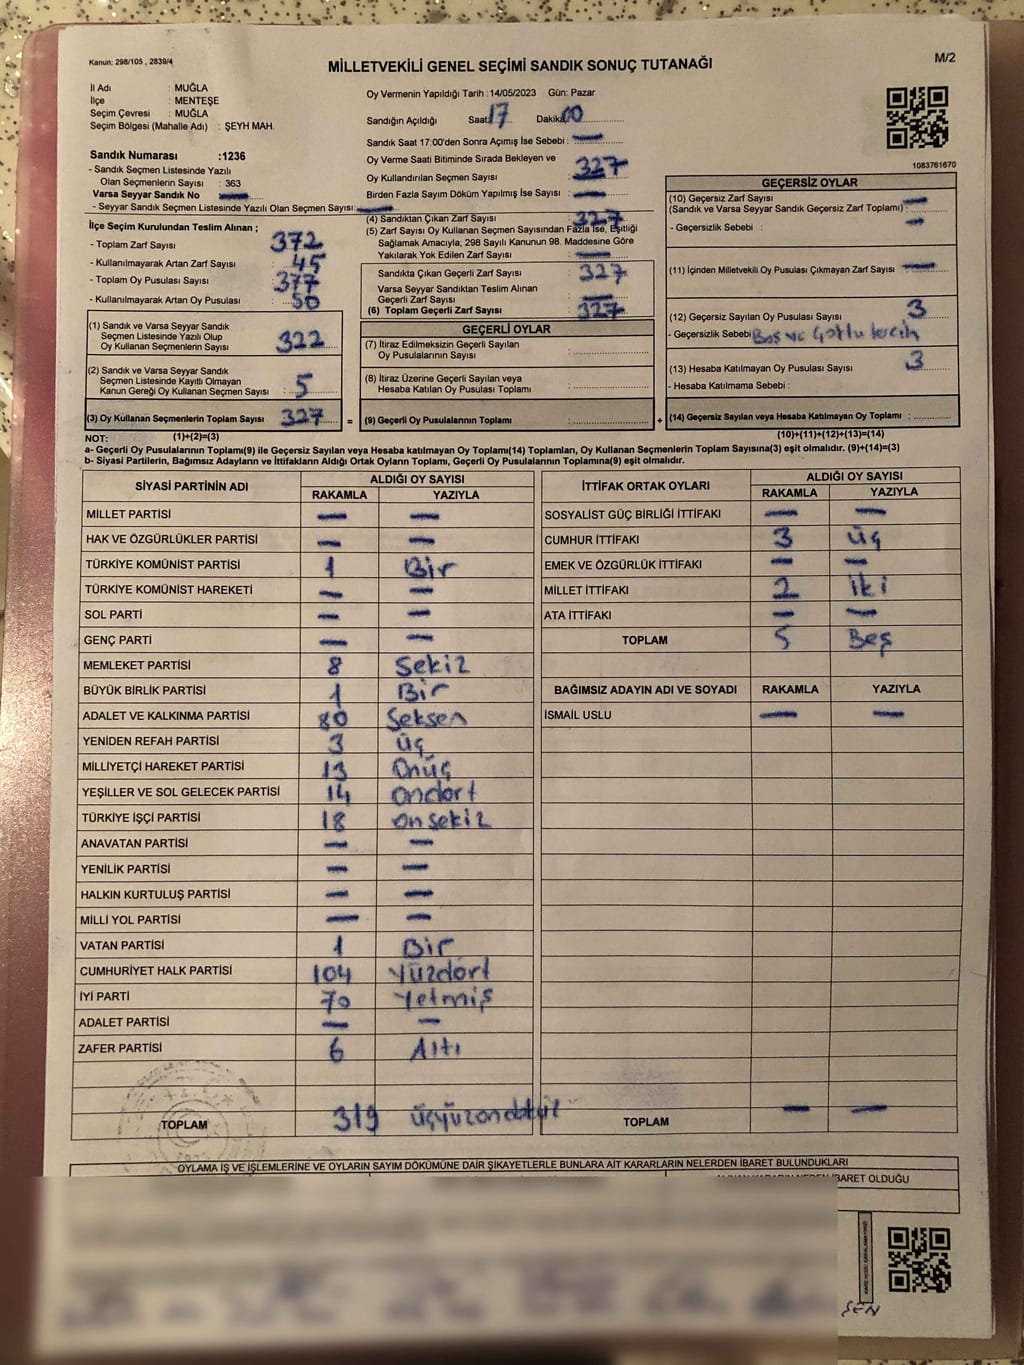 Kanun; 298/105 , 2839/4
MİLLETVEKİLİ GENEL SEÇİMİ SANDIK SONUÇ TUTANAĞI
M/2
İl Adı : MUĞLA
İlçe : MENTEŞE
Seçim Çevresi : MUĞLA
Seçim Bölgesi (Mahalle Adı) : ŞEYH MAH.
Sandık Numarası :1236
- Sandık Seçmen Listesinde Yazılı
Olan Seçmenlerin Sayısı : 363
Varsa Seyyar Sandık No —
- Seyyar Sandık Seçmen Listesinde Yazılı Olan Seçmen Sayısı: —
Oy Vermenin Yapıldığı Tarih : 14/05/2023 Gün: Pazar
Sandığın Açıldığı Saat 17 Dakika 00
Sandık Saat 17:00'den Sonra Açımış İse Sebebi : —
Oy Verme Saati Bitiminde Sırada Bekleyen ve
Oy Kullandırılan Seçmen Sayısı : 327
Birden Fazla Sayım Döküm Yapılmış İse Sayısı : —
1083761670
İlçe Seçim Kurulundan Teslim Alınan ;
- Toplam Zarf Sayısı : 372
- Kullanılmayarak Artan Zarf Sayısı : 45
- Toplam Oy Pusulası Sayısı : 377
- Kullanılmayarak Artan Oy Pusulası : 50
(1) Sandık ve Varsa Seyyar Sandık
Seçmen Listesinde Yazılı Olup
Oy Kullanan Seçmenlerin Sayısı : 322
(2) Sandık ve Varsa Seyyar Sandık
Seçmen Listesinde Kayıtlı Olmayan
Kanun Gereği Oy Kullanan Seçmen Sayısı : 5
(3) Oy Kullanan Seçmenlerin Toplam Sayısı : 327 =
(4) Sandıktan Çıkan Zarf Sayısı : 327
(5) Zarf Sayısı Oy Kullanan Seçmen Sayısından Fazla İse, Eşitliği
Sağlamak Amacıyla, 298 Sayılı Kanunun 98. Maddesine Göre
Yakılarak Yok Edilen Zarf Sayısı : —
Sandıkta Çıkan Geçerli Zarf Sayısı : 327
Varsa Seyyar Sandıktan Teslim Alınan
Geçerli Zarf Sayısı : —
(6) Toplam Geçerli Zarf Sayısı : 327
GEÇERLİ OYLAR
(7) İtiraz Edilmeksizin Geçerli Sayılan
Oy Pusulalarının Sayısı :
(8) İtiraz Üzerine Geçerli Sayılan veya
Hesaba Katılan Oy Pusulası Toplamı :
(9) Geçerli Oy Pusulalarının Toplamı : +
GEÇERSİZ OYLAR
(10) Geçersiz Zarf Sayısı
(Sandık ve Varsa Seyyar Sandık Geçersiz Zarf Toplamı) : —
- Geçersizlik Sebebi : —
(11) İçinden Milletvekili Oy Pusulası Çıkmayan Zarf Sayısı : —
(12) Geçersiz Sayılan Oy Pusulası Sayısı : 3
- Geçersizlik Sebebi Boş ve
(13) Hesaba Katılmayan Oy Pusulası Sayısı : 3
- Hesaba Katılmama Sebebi :
(14) Geçersiz Sayılan veya Hesaba Katılmayan Oy Toplamı :
NOT: (1)+(2)=(3) (10)+(11)+(12)+(13)=(14)
a- Geçerli Oy Pusulalarının Toplamı(9) ile Geçersiz Sayılan veya Hesaba katılmayan Oy Toplamı(14) Toplamları, Oy Kullanan Seçmenlerin Toplam Sayısına(3) eşit olmalıdır. (9)+(14)=(3)
b- Siyasi Partilerin, Bağımsız Adayların ve İttifakların Aldığı Ortak Oyların Toplamı, Geçerli Oy Pusulalarının Toplamına(9) eşit olmalıdır.
SİYASİ PARTİNİN ADI ALDIĞI OY SAYISI
RAKAMLA YAZIYLA
MİLLET PARTİSİ — —
HAK VE ÖZGÜRLÜKLER PARTİSİ — —
TÜRKİYE KOMÜNİST PARTİSİ 1 Bir
TÜRKİYE KOMÜNİST HAREKETİ — —
SOL PARTİ — —
GENÇ PARTİ — —
MEMLEKET PARTİSİ 8 Sekiz
BÜYÜK BİRLİK PARTİSİ 1 Bir
ADALET VE KALKINMA PARTİSİ 80 Seksen
YENİDEN REFAH PARTİSİ 3 üç
MİLLİYETÇİ HAREKET PARTİSİ 13 Onüç
YEŞİLLER VE SOL GELECEK PARTİSİ 14 ondört
TÜRKİYE İŞÇİ PARTİSİ 18 onsekiz
ANAVATAN PARTİSİ — —
YENİLİK PARTİSİ — —
HALKIN KURTULUŞ PARTİSİ — —
MİLLİ YOL PARTİSİ — —
VATAN PARTİSİ 1 Bir
CUMHURİYET HALK PARTİSİ 104 Yüzdört
İYİ PARTİ 70 Yetmiş
ADALET PARTİSİ — —
ZAFER PARTİSİ 6 Altı
TOPLAM 319
İTTİFAK ORTAK OYLARI ALDIĞI OY SAYISI
RAKAMLA YAZIYLA
SOSYALİST GÜÇ BİRLİĞİ İTTİFAKI — —
CUMHUR İTTİFAKI 3 üç
EMEK VE ÖZGÜRLÜK İTTİFAKI — —
MİLLET İTTİFAKI 2 iki
ATA İTTİFAKI — —
TOPLAM 5 Beş
BAĞIMSIZ ADAYIN ADI VE SOYADI RAKAMLA YAZIYLA
İSMAİL USLU — —
TOPLAM — —
OYLAMA İŞ VE İŞLEMLERİNE VE OYLARIN SAYIM DÖKÜMÜNE DAİR ŞİKAYETLERLE BUNLARA AİT KARARLARIN NELERDEN İBARET BULUNDUKLARI
ALINAN KARARIN NEDEN İBARET OLDUĞU
ŞEN